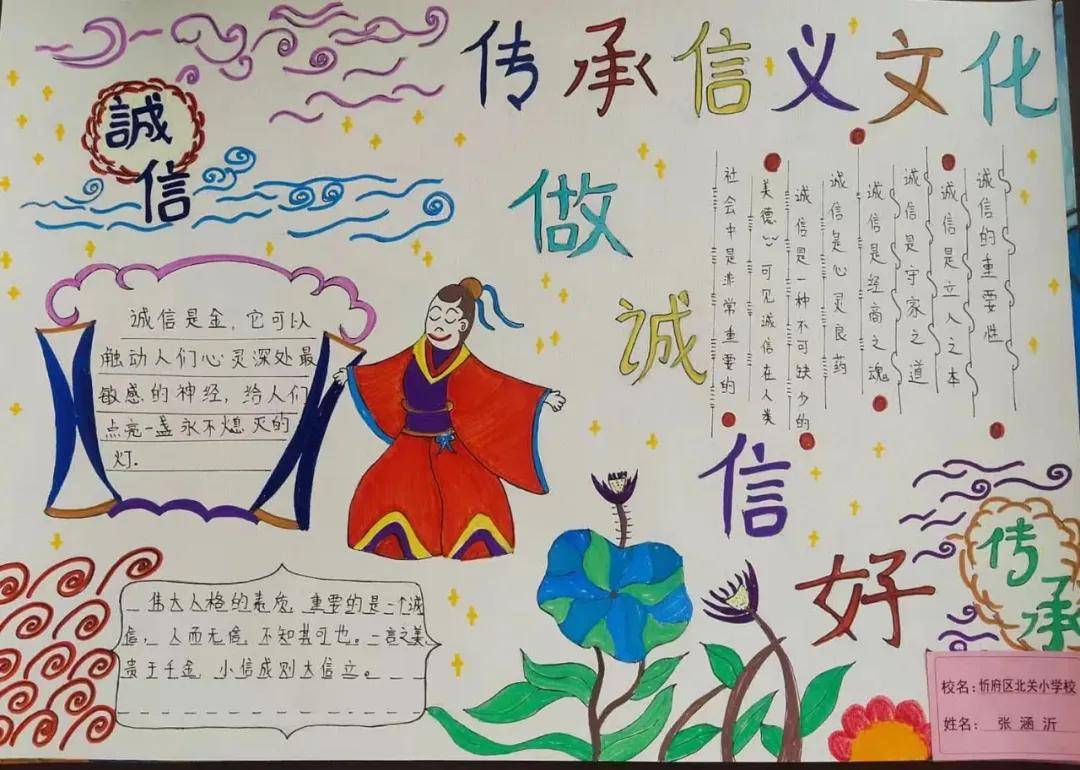 传承信义文化
誠
信
做
诚
信
好
诚信的重要性
诚信是立人之本
诚信是守家之道
诚信是经商之魂
诚信是心灵良药
诚信是一种不可缺少的
美德 可见诚信在人类
社会中是非常重要的
诚信是金,它可以
触动人们心灵深处最
敏感的神经,给人们
点亮一盏永不熄灭的
灯.
伟大人格的素质,重要的是一个诚
信,人而无信,不知其可也。一言之美
贵于千金,小信成则大信立。
传
承
校名:忻府区北关小学校
姓名:张涵沂